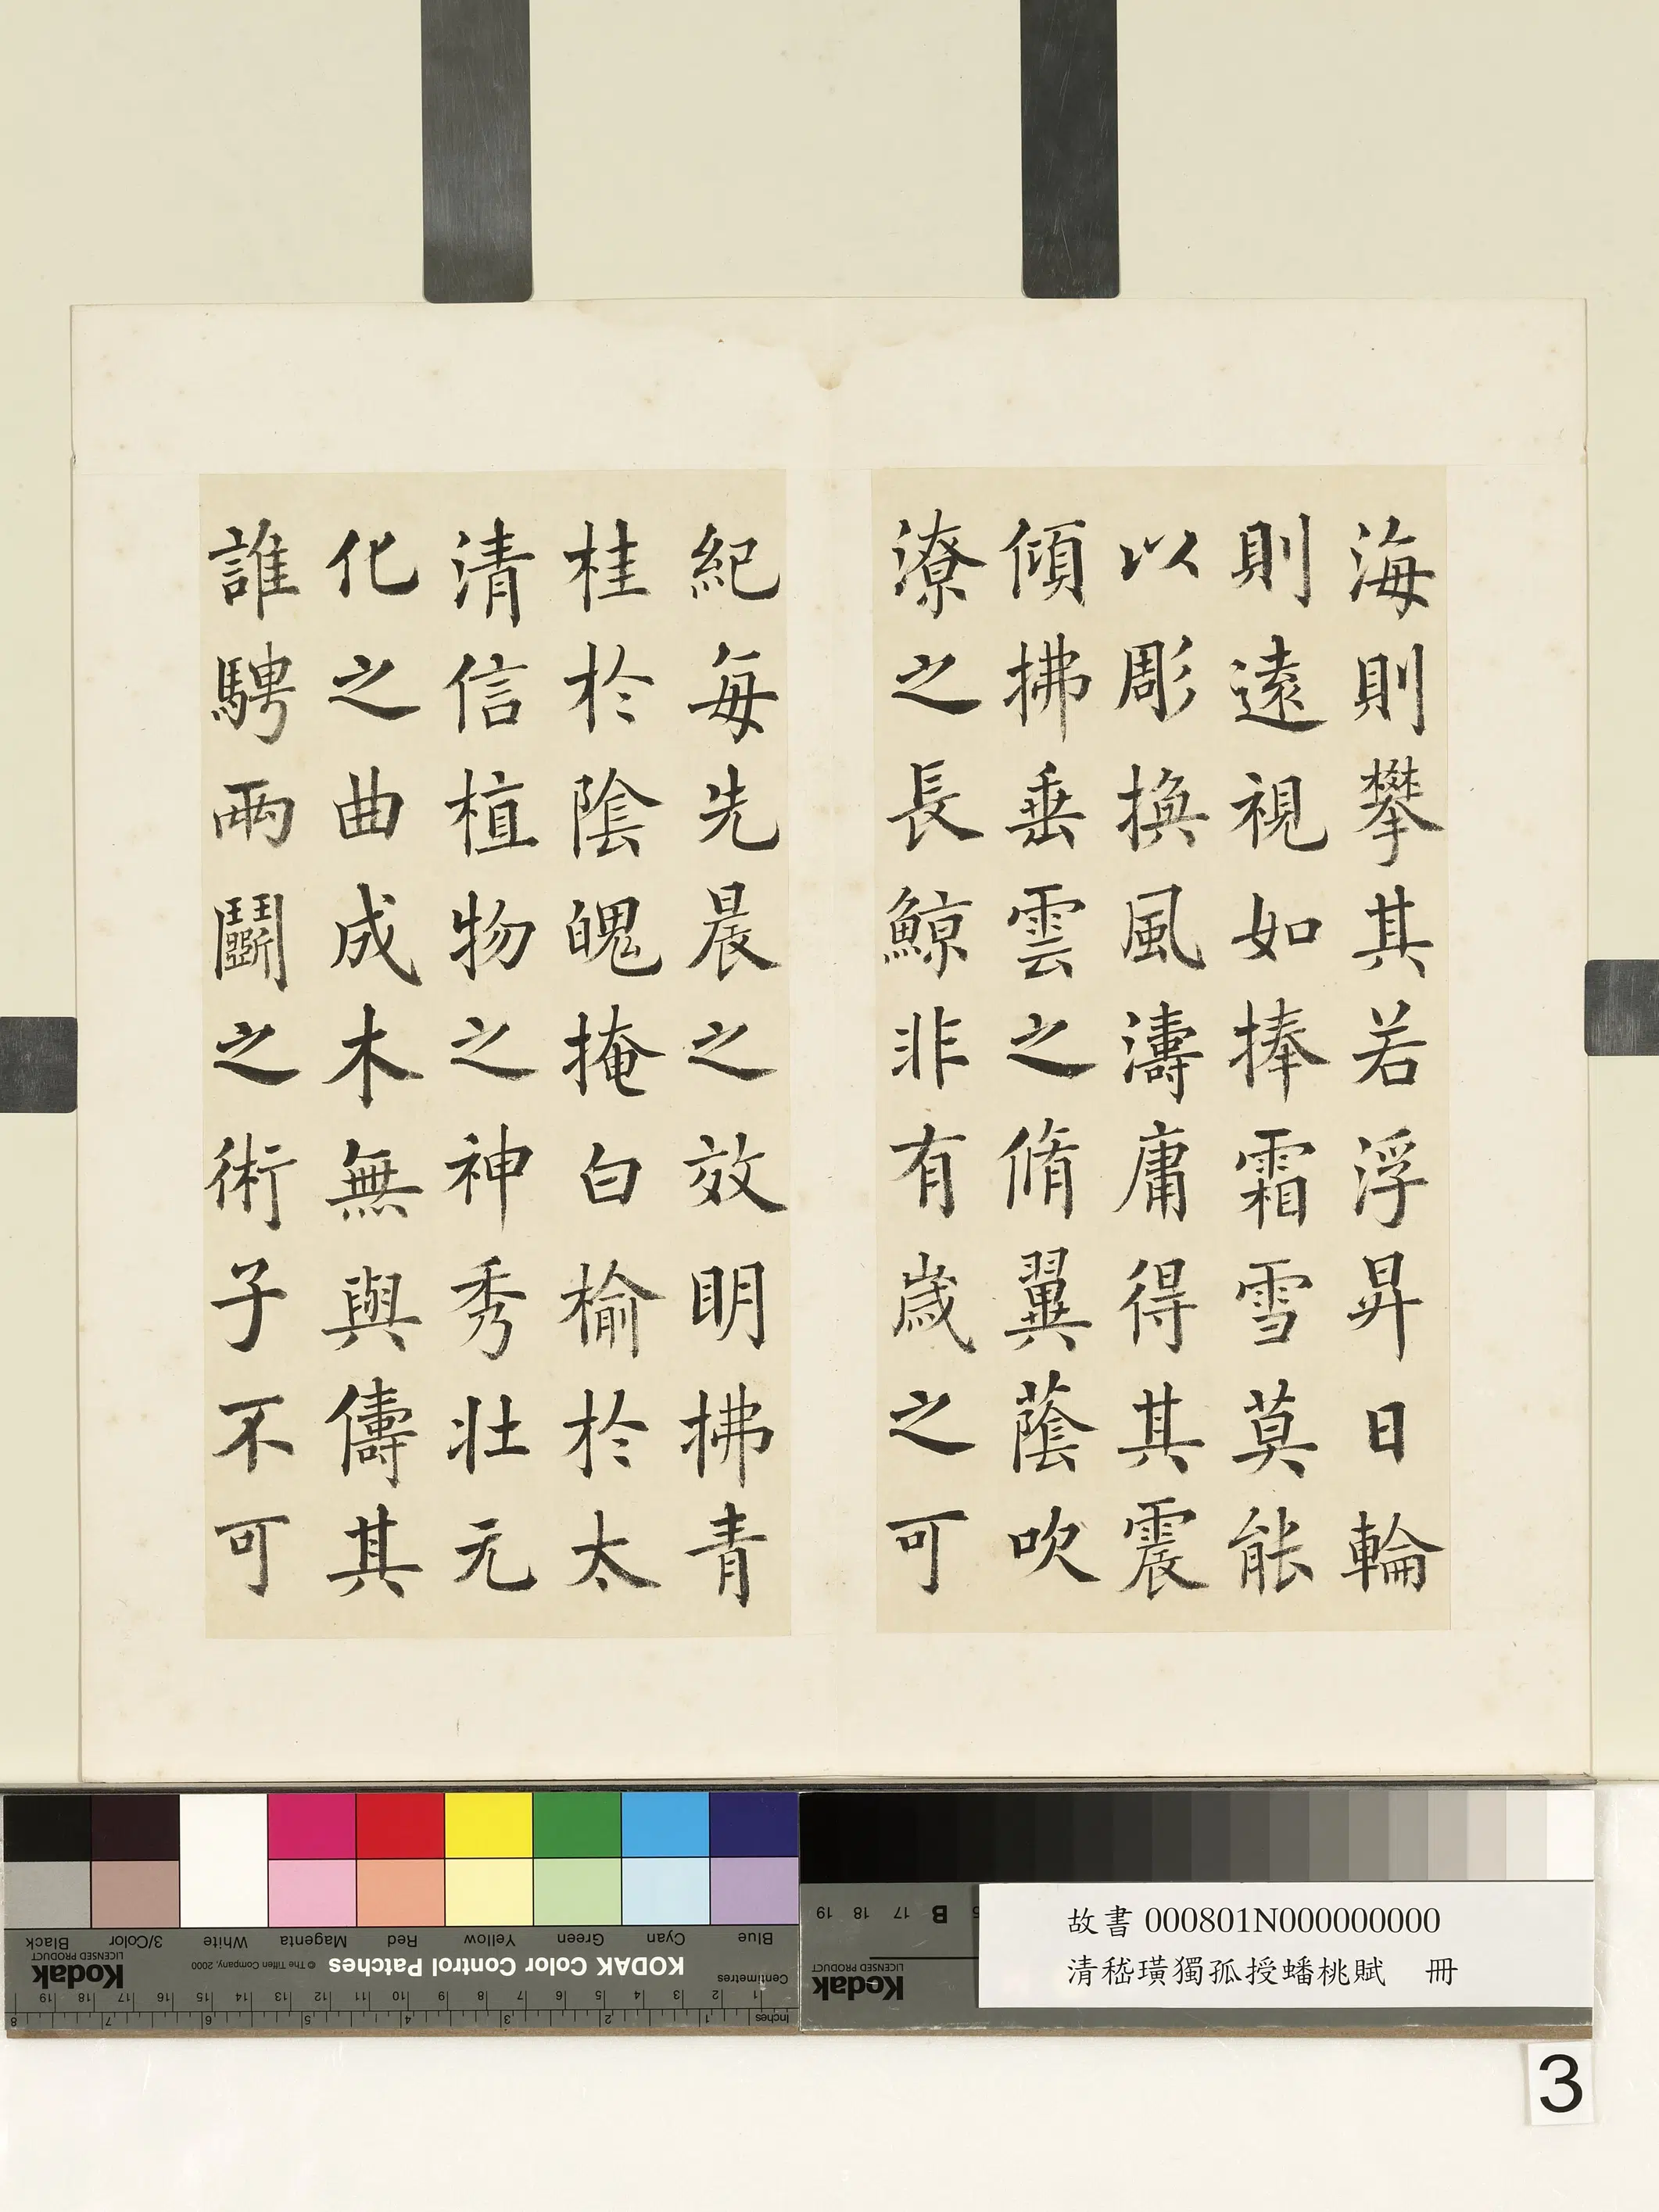 海則攀其若浮昇日輪
則遠視如捧霜雪莫能
以彫換風濤庸得其震
傾拂垂雲之脩翼蔭吹
潦之長鯨非有歲之可
紀每先晨之效明拂青
桂於陰魄掩白榆於太
清信植物之神秀壯元
化之曲成木無與儔其
誰騁兩鬬之術子不可
Blue
Cyan
Green
Yellow
Red
Magenta
White
3/Color
Black
KODAK Color Control Patches
© The Tiffen Company, 2000
Kodak
LICENSED PRODUCT
Centimetres
1 2 3 4 5 6 7 8 9 10 11 12 13 14 15 16 17 18 19
Inches
1 2 3 4 5 6 7 8
B 17 18 19
Kodak
LICENSED PRODUCT
故書000801N000000000
清嵇璜獨孤授蟠桃賦 冊
3